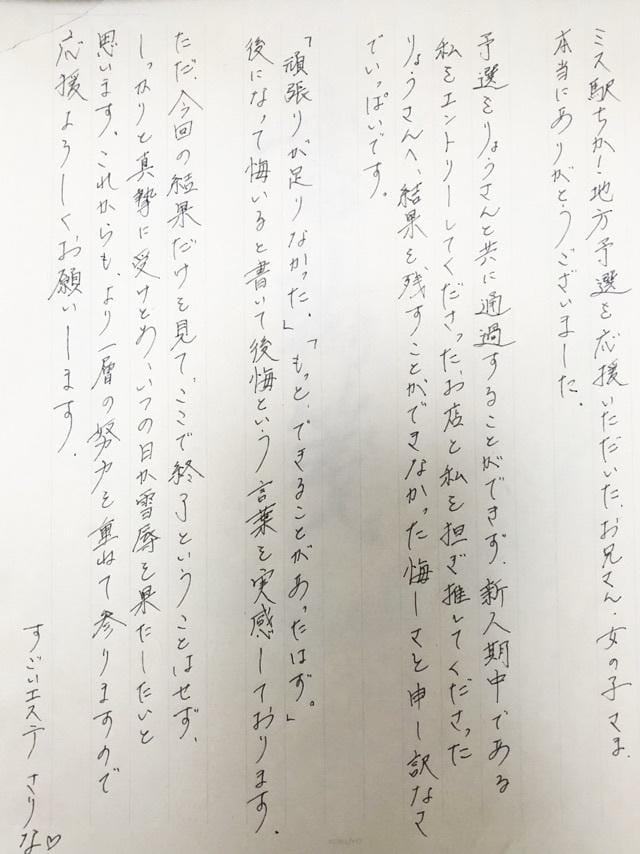 ミス駅ちか！地方予選を応援いただいた、お兄さん、女の子さま、
本当にありがとうございました。
予選をりょうさんと共に通過することができず、新人期中である
私をエントリーしてくださった、お店と私を担ぎ推してくださった
りょうさんへ、結果を残すことができなかった悔しさと申し訳なさ
でいっぱいです。
「頑張りが足りなかった。」「もっと、できることがあったはず。」
後になって悔いると書いて後悔という言葉を実感しております。
ただ、今回の結果だけを見て、ここで終了ということはせず、
しっかりと真摯に受けとめ、いつの日か雪辱を果たしたいと
思います。これからも、より一層の努力を重ねて参りますので
応援よろしくお願いします。
すごいエステ さりな♡
KOKUYO